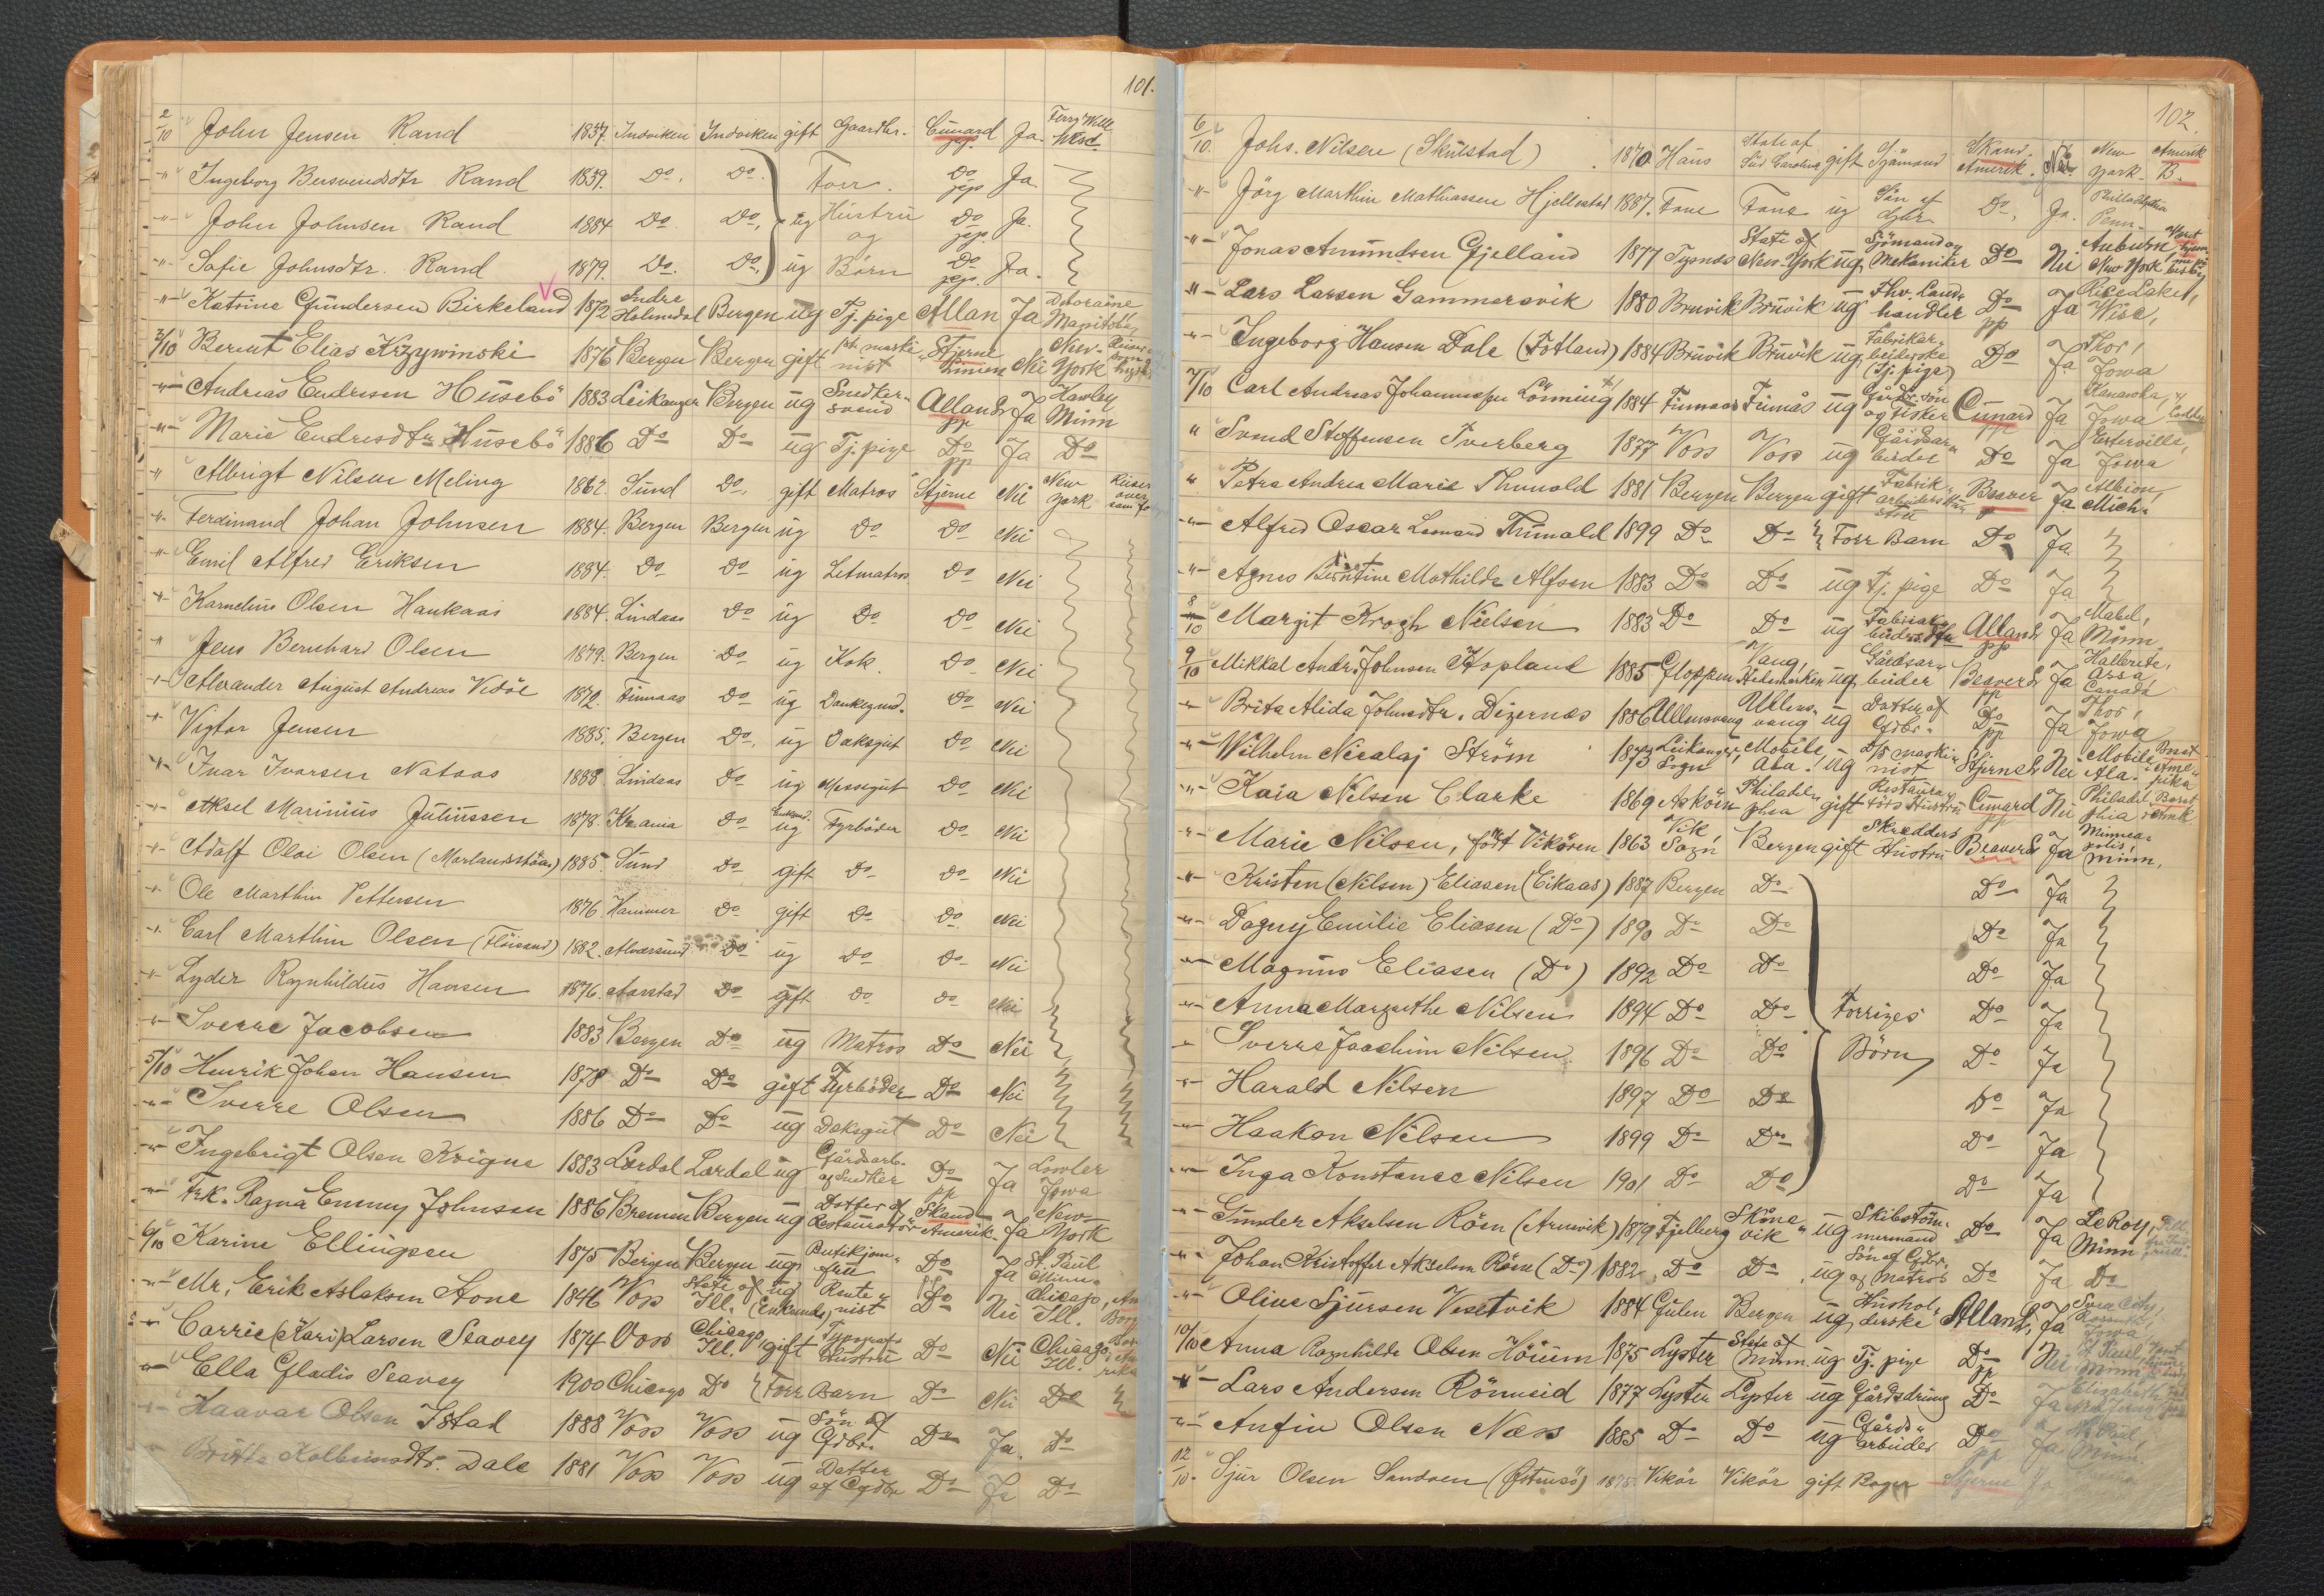 101.
2/10 John Jensen Rand 1837. Indviken Indviken gift Gaardbr. Cunard Ja. Wisc.
-"- Ingeborg Bersvendsdtr Rand 1839. Do. Do. Forr. Do Ja
-"- John Johnsen Rand 1884 Do. Do. ug Hustru og Do Ja.
-"- Sofie Johnsdtr. Rand 1879. Do. Do. ug Börn Do Ja.
-"- Katrine Gundersen Birkeland 1872 Indre Holmedal Bergen ug Tj. pige Allan Ja Deloraine Manitoba
3/10 Berent Elias Krzywinski 1876 Bergen Bergen gift maskinist Stjerne Linien Nei New-York
-"- Andreas Endresen Husebö 1883 Leikanger Bergen ug Snedkersvend Allan Ja Hawley Minn
-"- Marie Endresdtr Husebö 1886 Do Do ug Tj. pige Do pp Ja Do
-"- Albrigt Nilsen Meling 1862. Sund Do. gift Matros Stjerne Nei New York
-"- Ferdinand Johan Johnsen 1884. Bergen Bergen ug Do Do Nei
-"- Emil Alfred Eriksen 1884. Do Do ug Letmatros Do Nei
-"- Kornelius Olsen Haukaas 1884. Lindaas Do ug Do Do Nei
-"- Jens Bernhard Olsen 1879. Bergen Do ug Kok. Do Nei
-"- Alexander August Andreas Vedöe 1872. Finnaas Do ug Donkeymd. Do Nei
-"- Vigtor Jensen 1885. Bergen Do. ug Daksgut Do Nei
-"- Ivar Ivarsen Nataas 1888. Lindaas Do ug Messegut Do Nei
-"- Aksel Marinius Juliussen 1878. Kr.ania Do ug Fyrböder Do Nei
-"- Adolf Olai Olsen 1885. Sund Do gift Do Do Nei
-"- Ole Marthin Pettersen 1876. Hammer Do gift Do Do. Nei
-"- Carl Marthin Olsen 1882. Alversund Do ug Do Do Nei
-"- Lyder Ragnhildus Hansen 1876. Aarstad Do gift Do Do Nei
-"- Sverre Jacobsen 1883 Bergen Do ug Matros Do Nei
5/10 Henrik Johan Hansen 1878 Do Do gift Fyrböder Do Nei
-"- Sverre Olsen 1886 Do Do ug Daksgut Do Nei
-"- Ingebrigt Olsen Kvigne 1883 Lærdal Lærdal ug Gårdsarb. og Snedker Do pp Ja Lawler Iowa
-"- Frk. Ragna Emmy Johnsen 1886 Bremen Bergen ug Datter af Restauratör Skand. Amerik. Ja New-York
6/10 Karine Ellingsen 1875 Bergen Bergen ug Butikjomfru Do Ja St. Paul Minn.
-"- Mr. Erik Aslaksen Stone 1846 Voss State of Ill. ug (Enkemd) Do Nei Chicago, Ill.
-"- Carrie (Kari) Larsen Seavey 1874 Voss Chicago Ill. gift Typografs Hustru Do Nei Chicago Ill.
-"- Ella Gladis Seavey 1900 Chicago Do Forr Barn Do Nei Do
-"- Haavar Olsen Istad 1888 Voss Voss ug Sön af Gdbr. Do Ja. Do
Dale 1881 Voss Voss ug Datter af Gdbr Do Ja Do
102.
6/10. Johs. Nilsen (Skulstad) 1870. Haus State of Süd Carolina gift Sjömand Skand. Amerik. Nei New York. Amerik B.
-"- Jörg Marthin Mathiassen Hjellestad 1887. Fane Fane ug Sön af Gdbr. Do. Ja. Philadelphia Penn.
-"- Jonas Amundsen Gjelland 1877 Tysnes State of New-York ug Sjömand og Mekaniker Do Nei Auburn, New York
-"- Lars Larsen Gammersvik 1880 Bruvik Bruvik ug Fhv. Landhandler Do pp Ja Rice Lake, Wisc,
-"- Ingeborg Hansen Dale (Fotland) 1884 Bruvik Bruvik ug Fabrikarbeiderske (Tj. pige) Do Ja Thor, Iowa
7/10 Carl Andreas Johannessen Lönning 1884 Finnaas Finnås ug Gårdbr. sön og Fisker Cunard pp Ja Kanawha, Iowa
" Svend Stoffensen Tverberg 1877 Voss Voss ug Gårdsarbeider Do Ja Esterville, Iowa
" Petra Andrea Marie Thunold 1881 Bergen Bergen gift Fabrikarbeiders Hustru Beaver Ja Albion, Mich.
-"- Alfred Oscar Leonard Thunold 1899 Do Do Forr Barn Do Ja
-"- Agnes Berntine Mathilde Alfsen 1883 Do Do ug Tj. pige Do Ja
8/10 Margit Krogh Nielsen 1883 Do Do ug Allan pp Ja Mabel, Minn.
9/10 Mikkal Andr. Johnsen Hopland 1885 Gloppen Vang, Hedemarken ug Gårdsarbeider Beaver pp Ja Canada
-"- Brita Alida Johnsdtr. Digernes 1886 Ullensvang Ullensvang ug Datter af Gdbr. Do pp Ja Thor, Iowa
-"- Wilhelm Nicolaj Ström 1873 Leikanger, Sogn Mobile, Ala. ug D/S maskinist Stjerne Nei Mobile, Ala.
-"- Kaia Nelson Clarke 1869 Asköen Philadelphia gift Restauratörs Hustru Cunard pp Nei Philadelphia
-"- Marie Nilsen, född Vikören 1863 Vik, Sogn Bergen gift Skredders Hustru Beaver Ja Minneapolis, Minn.
-"- Kristen (Nilsen) Eliasen (Eikaas) 1887 Bergen Do Do Ja
-"- Dagny Emilie Eliasen (Do) 1890 Do Do Do Ja
-"- Magnus Eliasen (Do) 1892 Do Do Do Ja
-"- Anna Margrethe Nilsen 1894 Do Do Forriges Do Ja
-"- Sverre Joachim Nilsen 1896 Do Do Börn Do Ja
-"- Harald Nilsen 1897 Do Do Do Ja
-"- Haakon Nilsen 1899 Do Do Do Ja
-"- Inga Konstance Nilsen 1901 Do Do Do Ja
-"- Gunder Akselsen Röen (Arnevik) 1879 Fjelberg Skånevik ug Skibstömmermand Do Ja Le Roy, Minn
-"- Johan Kristoffer Akselsen Röen (Do) 1882 Do Do ug Sön af Gdbr. og Matros Do Ja Do
-"- Oline Sjursen Vesetvik 1884 Gulen Bergen ug Husholderske Allan Ja Svea City, Iowa
10/10 Anna Ragnhilde Olsen Höium 1875 Lyster State of Minn. ug Tj. pige Do pp Nei St Paul, Minn
-"- Lars Andersen Römneid 1877 Lyster Lyster ug Gårdsdreng Do Ja
-"- Anfin Olsen Næss 1885 Do Do ug Gårdsarbeider Do pp Ja St Paul, Minn.
12/10. Sjur Olsen Sandven (Östensö) 1875. Vikör Vikör gift Bager Stjerne Ja